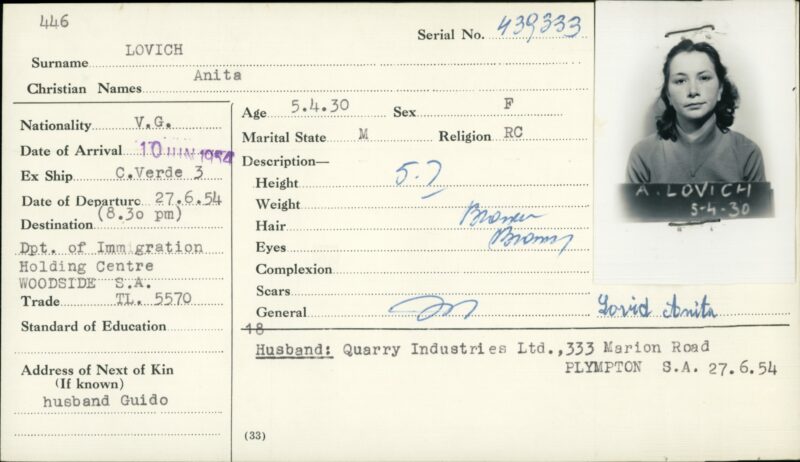 446
Serial No. 439333
Surname LOVICH
Christian Names Anita
Nationality V.G.
Date of Arrival 10 JUN 1954
Ex Ship C.Verde 3
Date of Departure 27.6.54
(8.30 pm)
Destination
Dpt. of Immigration
Holding Centre
WOODSIDE S.A.
Trade TL. 5570
Standard of Education
Address of Next of Kin
(If known)
husband Guido
Age 5.4.30 Sex F
Marital State M Religion RC
Description—
Height 5-7
Weight
Hair Brown
Eyes Brown
Complexion
Scars
General
48
Husband: Quarry Industries Ltd.,333 Marion Road
PLYMPTON S.A. 27.6.54
(33)
A. LOVICH
5-4-30
Lovid Anita